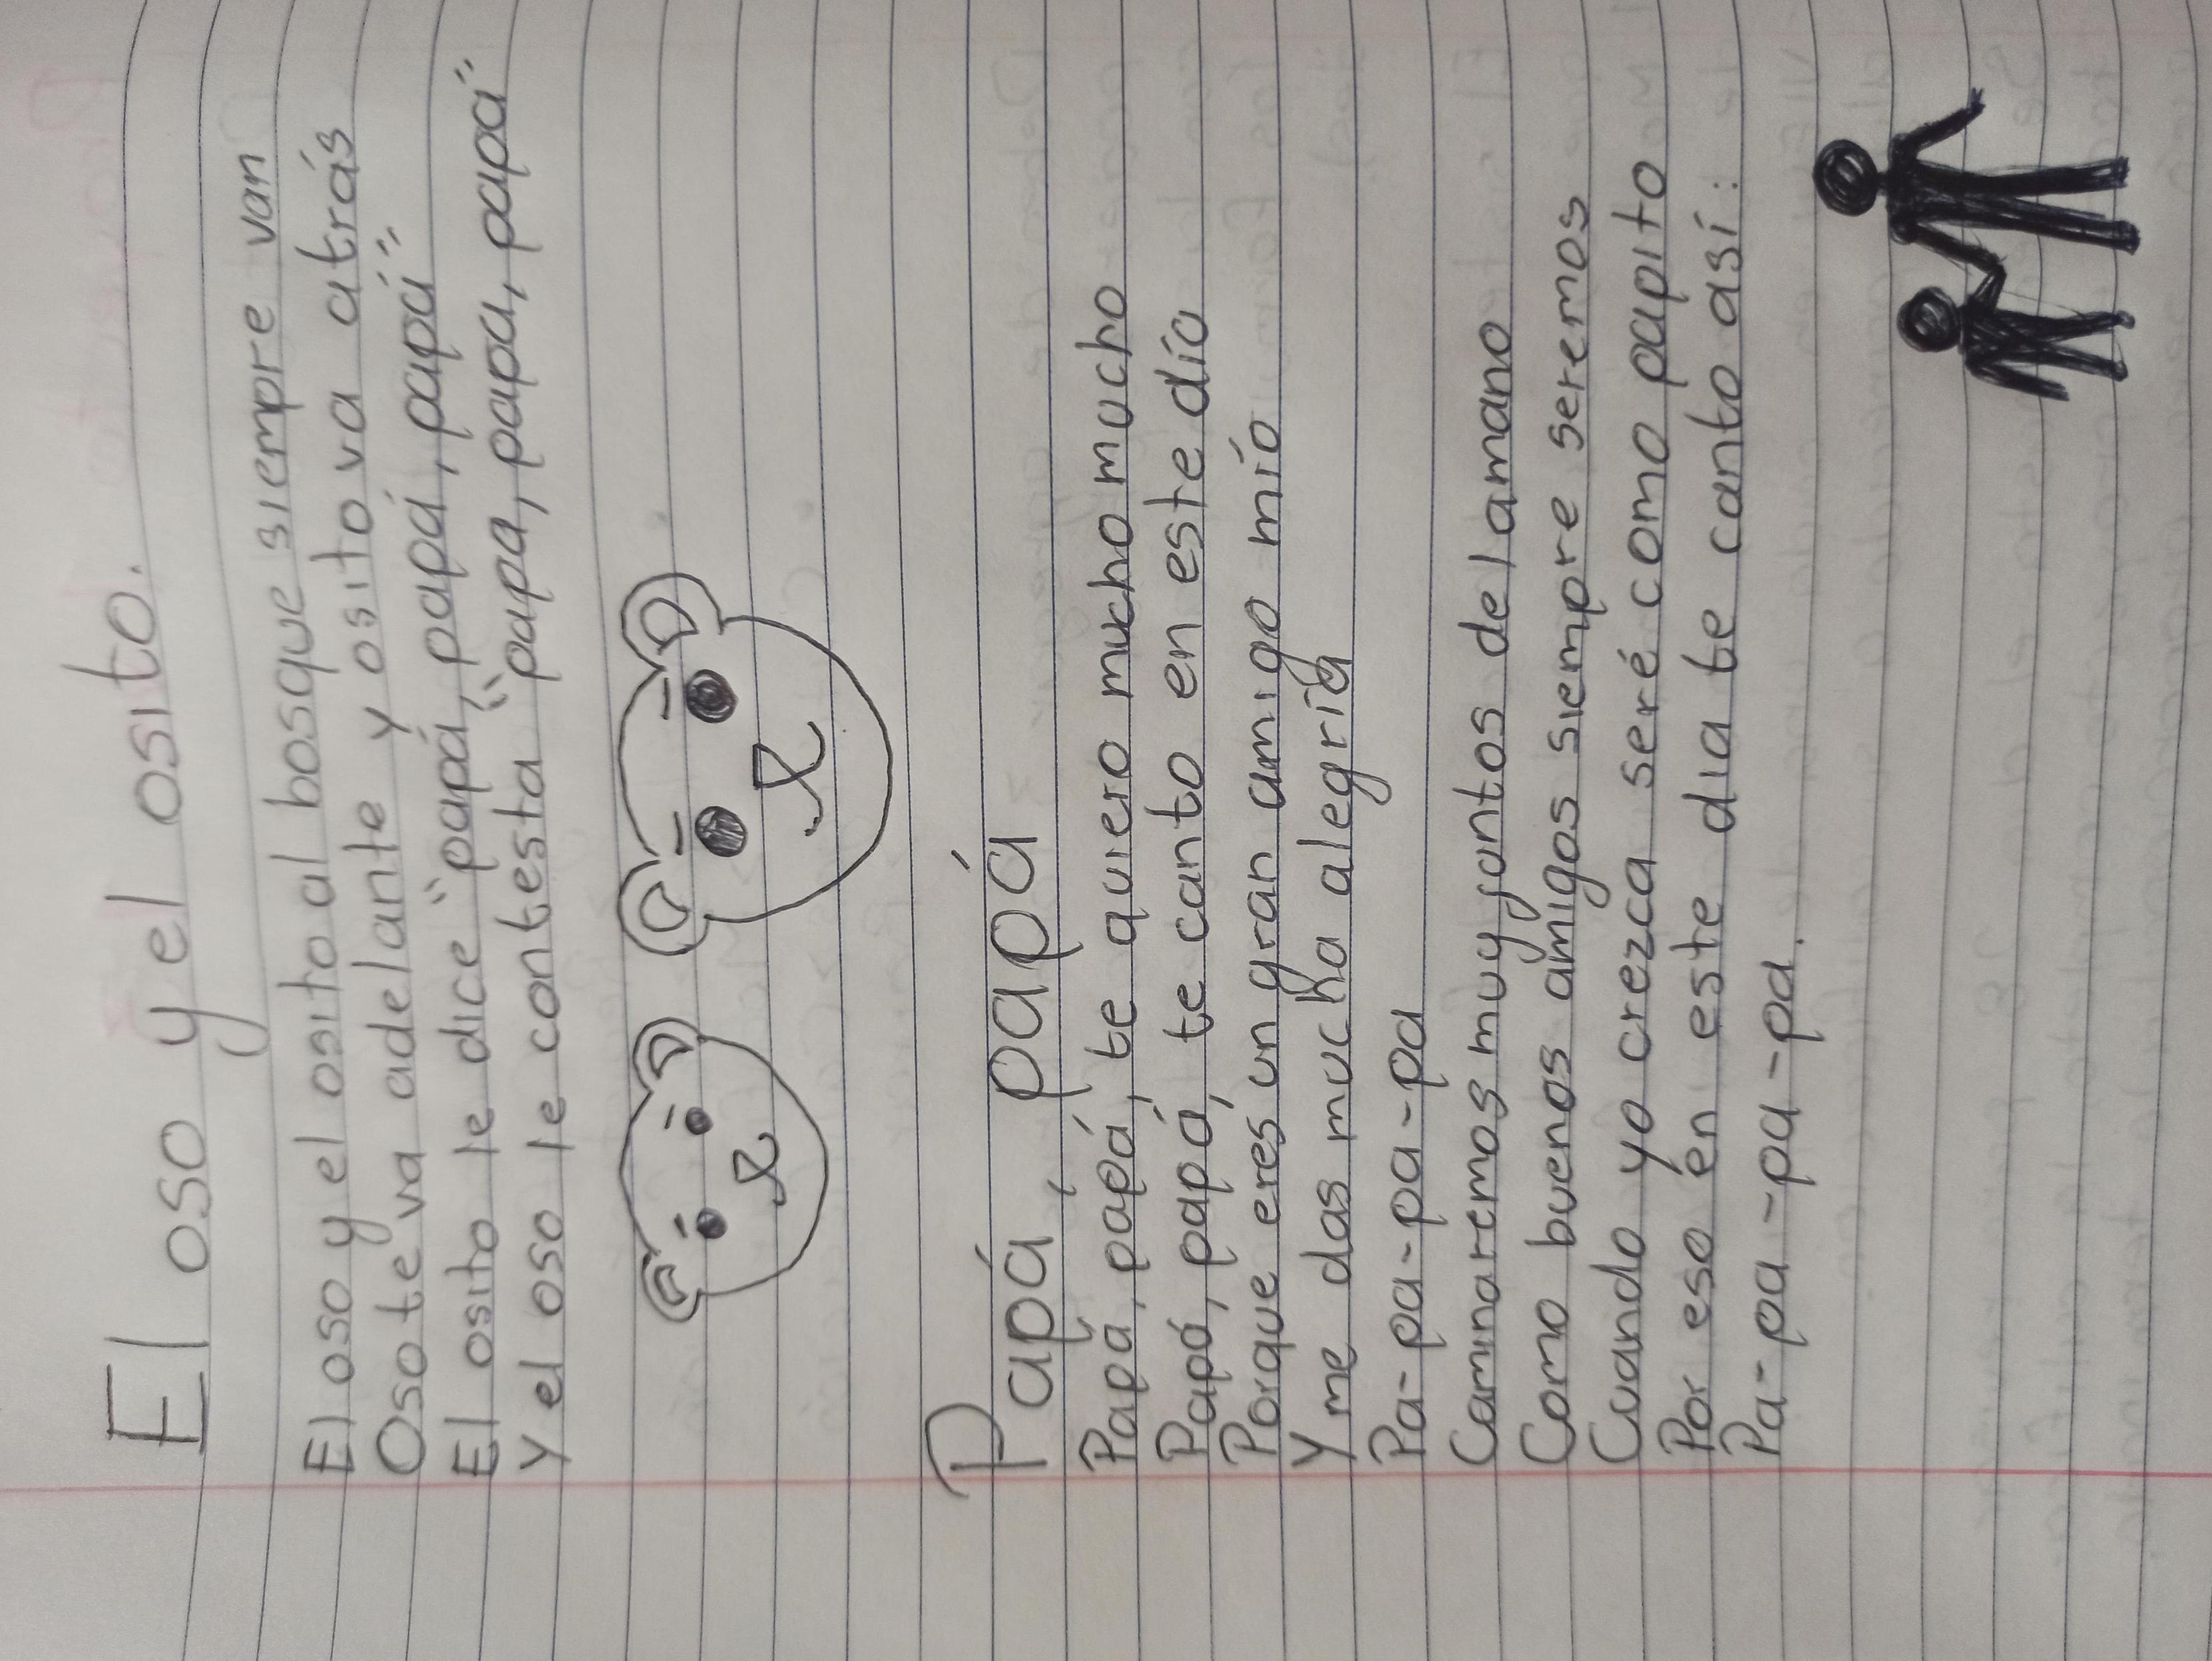 El oso y el osito.
El oso y el osito al bosque siempre van
Oso te va adelante y osito va atrás
El osito le dice "papá, papá, papá, papá"
Y el oso le contesta "papa, papa, papa, papá"
Papá, papá
Papá, papá, te quiero mucho mucho mucho
Papá, papá, te canto en este día
Porque eres un gran amigo mío
Y me das mucha alegría
Pa-pa-pa-pa
Caminaremos muy juntos de la mano
Como buenos amigos siempre seremos
Cuando yo crezca seré como papito
Por eso en este dia te canto así:
Pa-pa-pa-pa.